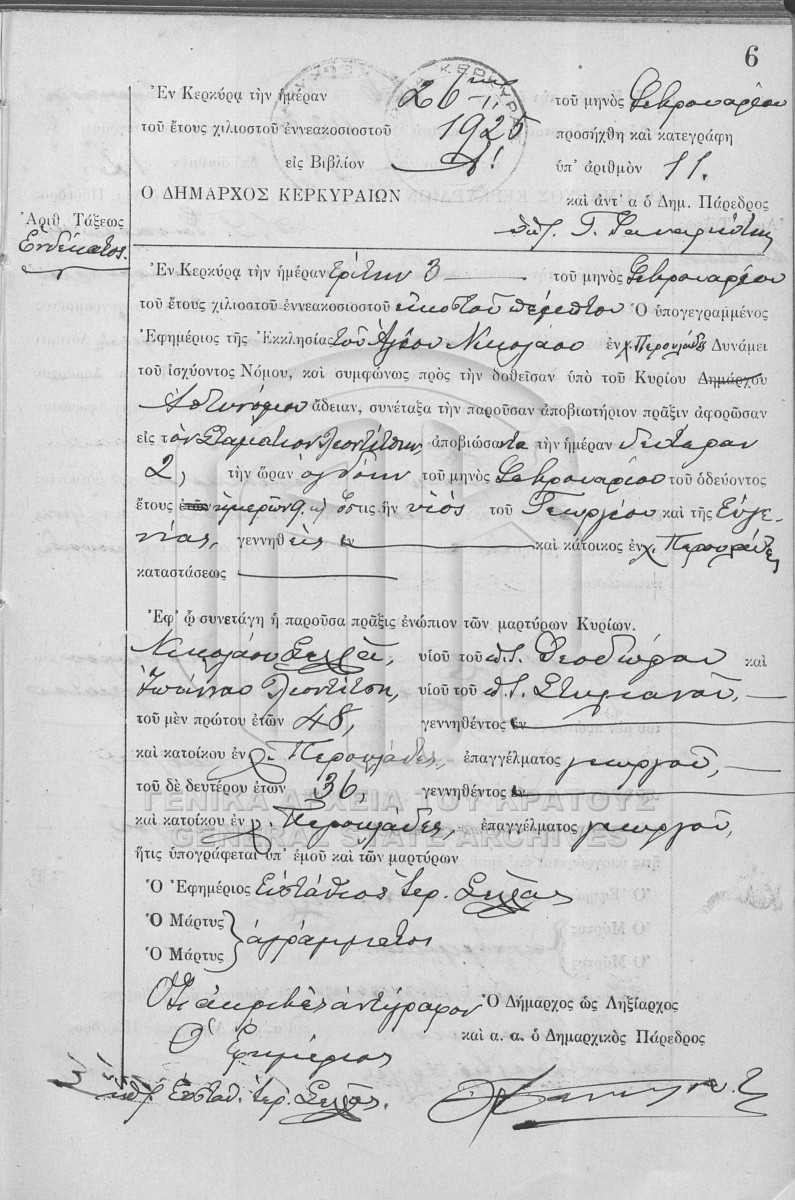 6
Ἐν Κερκύρᾳ τὴν ἡμέραν 26 τοῦ μηνὸς Φεβρουαρίου
τοῦ ἔτους χιλιοστοῦ ἐννεακοσιοστοῦ 1925 προσήχθη καὶ κατεγράφη
εἰς Βιβλίον Δ! ὑπ' ἀριθμὸν 11.
Ο ΔΗΜΑΡΧΟΣ ΚΕΡΚΥΡΑΙΩΝ καὶ ἀντ' α ὁ Δημ. Πάρεδρος
Ἀριθ. Τάξεως
Ἑνδέκατος.
ὑπ. Γ.
Ἐν Κερκύρᾳ τὴν ἡμέραν τρίτην 3 τοῦ μηνὸς Φεβρουαρίου
τοῦ ἔτους χιλιοστοῦ ἐννεακοσιοστοῦ εἰκοστοῦ πέμπτου Ὁ ὑπογεγραμμένος
Ἐφημέριος τῆς Ἐκκλησίας τοῦ Ἁγίου Νικολάου ἐν χ. Περουλάδες Δυνάμει
τοῦ ἰσχύοντος Νόμου, καὶ συμφώνως πρὸς τὴν δοθεῖσαν ὑπὸ τοῦ Κυρίου Δημάρχου
Ἀστυνόμου ἄδειαν, συνέταξα τὴν παροῦσαν ἀποβιωτήριον πρᾶξιν ἀφορῶσαν
εἰς τὸν Σταμάτιον Λιοντίτση, ἀποβιώσαντα τὴν ἡμέραν δευτέραν
2, τὴν ὥραν ὀγδόην τοῦ μηνὸς Φεβρουαρίου τοῦ ὁδεύοντος
ἔτους ἐτῶν ἡμερῶν ὅστις ἦν υἱὸς τοῦ Γεωργίου καὶ τῆς Εὐγε-
νίας, γεννηθεὶς ἐν καὶ κάτοικος ἐν χ. Περουλάδες
καταστάσεως
Ἐφ' ᾧ συνετάγη ἡ παροῦσα πρᾶξις ἐνώπιον τῶν μαρτύρων Κυρίων.
Νικολάου Σελλᾶ, υἱοῦ τοῦ π. Θεοδώρου καὶ
Ἰωάννου Λιοντίτση, υἱοῦ τοῦ π. Στυλιανοῦ,
τοῦ μὲν πρώτου ἐτῶν 48, γεννηθέντος ἐν
καὶ κατοίκου ἐν χ. Περουλάδες, ἐπαγγέλματος γεωργοῦ,
τοῦ δὲ δευτέρου ἐτῶν 36, γεννηθέντος ἐν
ΓΕΝΙΚΑ ΑΡΧΕΙΑ ΤΟΥ ΚΡΑΤΟΥΣ
καὶ κατοίκου ἐν χ. Περουλάδες, ἐπαγγέλματος γεωργοῦ,
GENERAL STATE ARCHIVES
ἥτις ὑπογράφεται ὑπ' ἐμοῦ καὶ τῶν μαρτύρων
Ὁ Ἐφημέριος Εὐστάθιος Ἱερ. Σελλᾶς
Ὁ Μάρτυς
ἀγράμματοι
Ὁ Μάρτυς
Ὅτι ἀκριβὲς ἀντίγραφον Ὁ Δήμαρχος ὡς Ληξίαρχος
Ὁ Ἐφημέριος καὶ α. α. ὁ Δημαρχικὸς Πάρεδρος
ὑπ. Εὐστάθ. Ἱερ. Σελλᾶς.